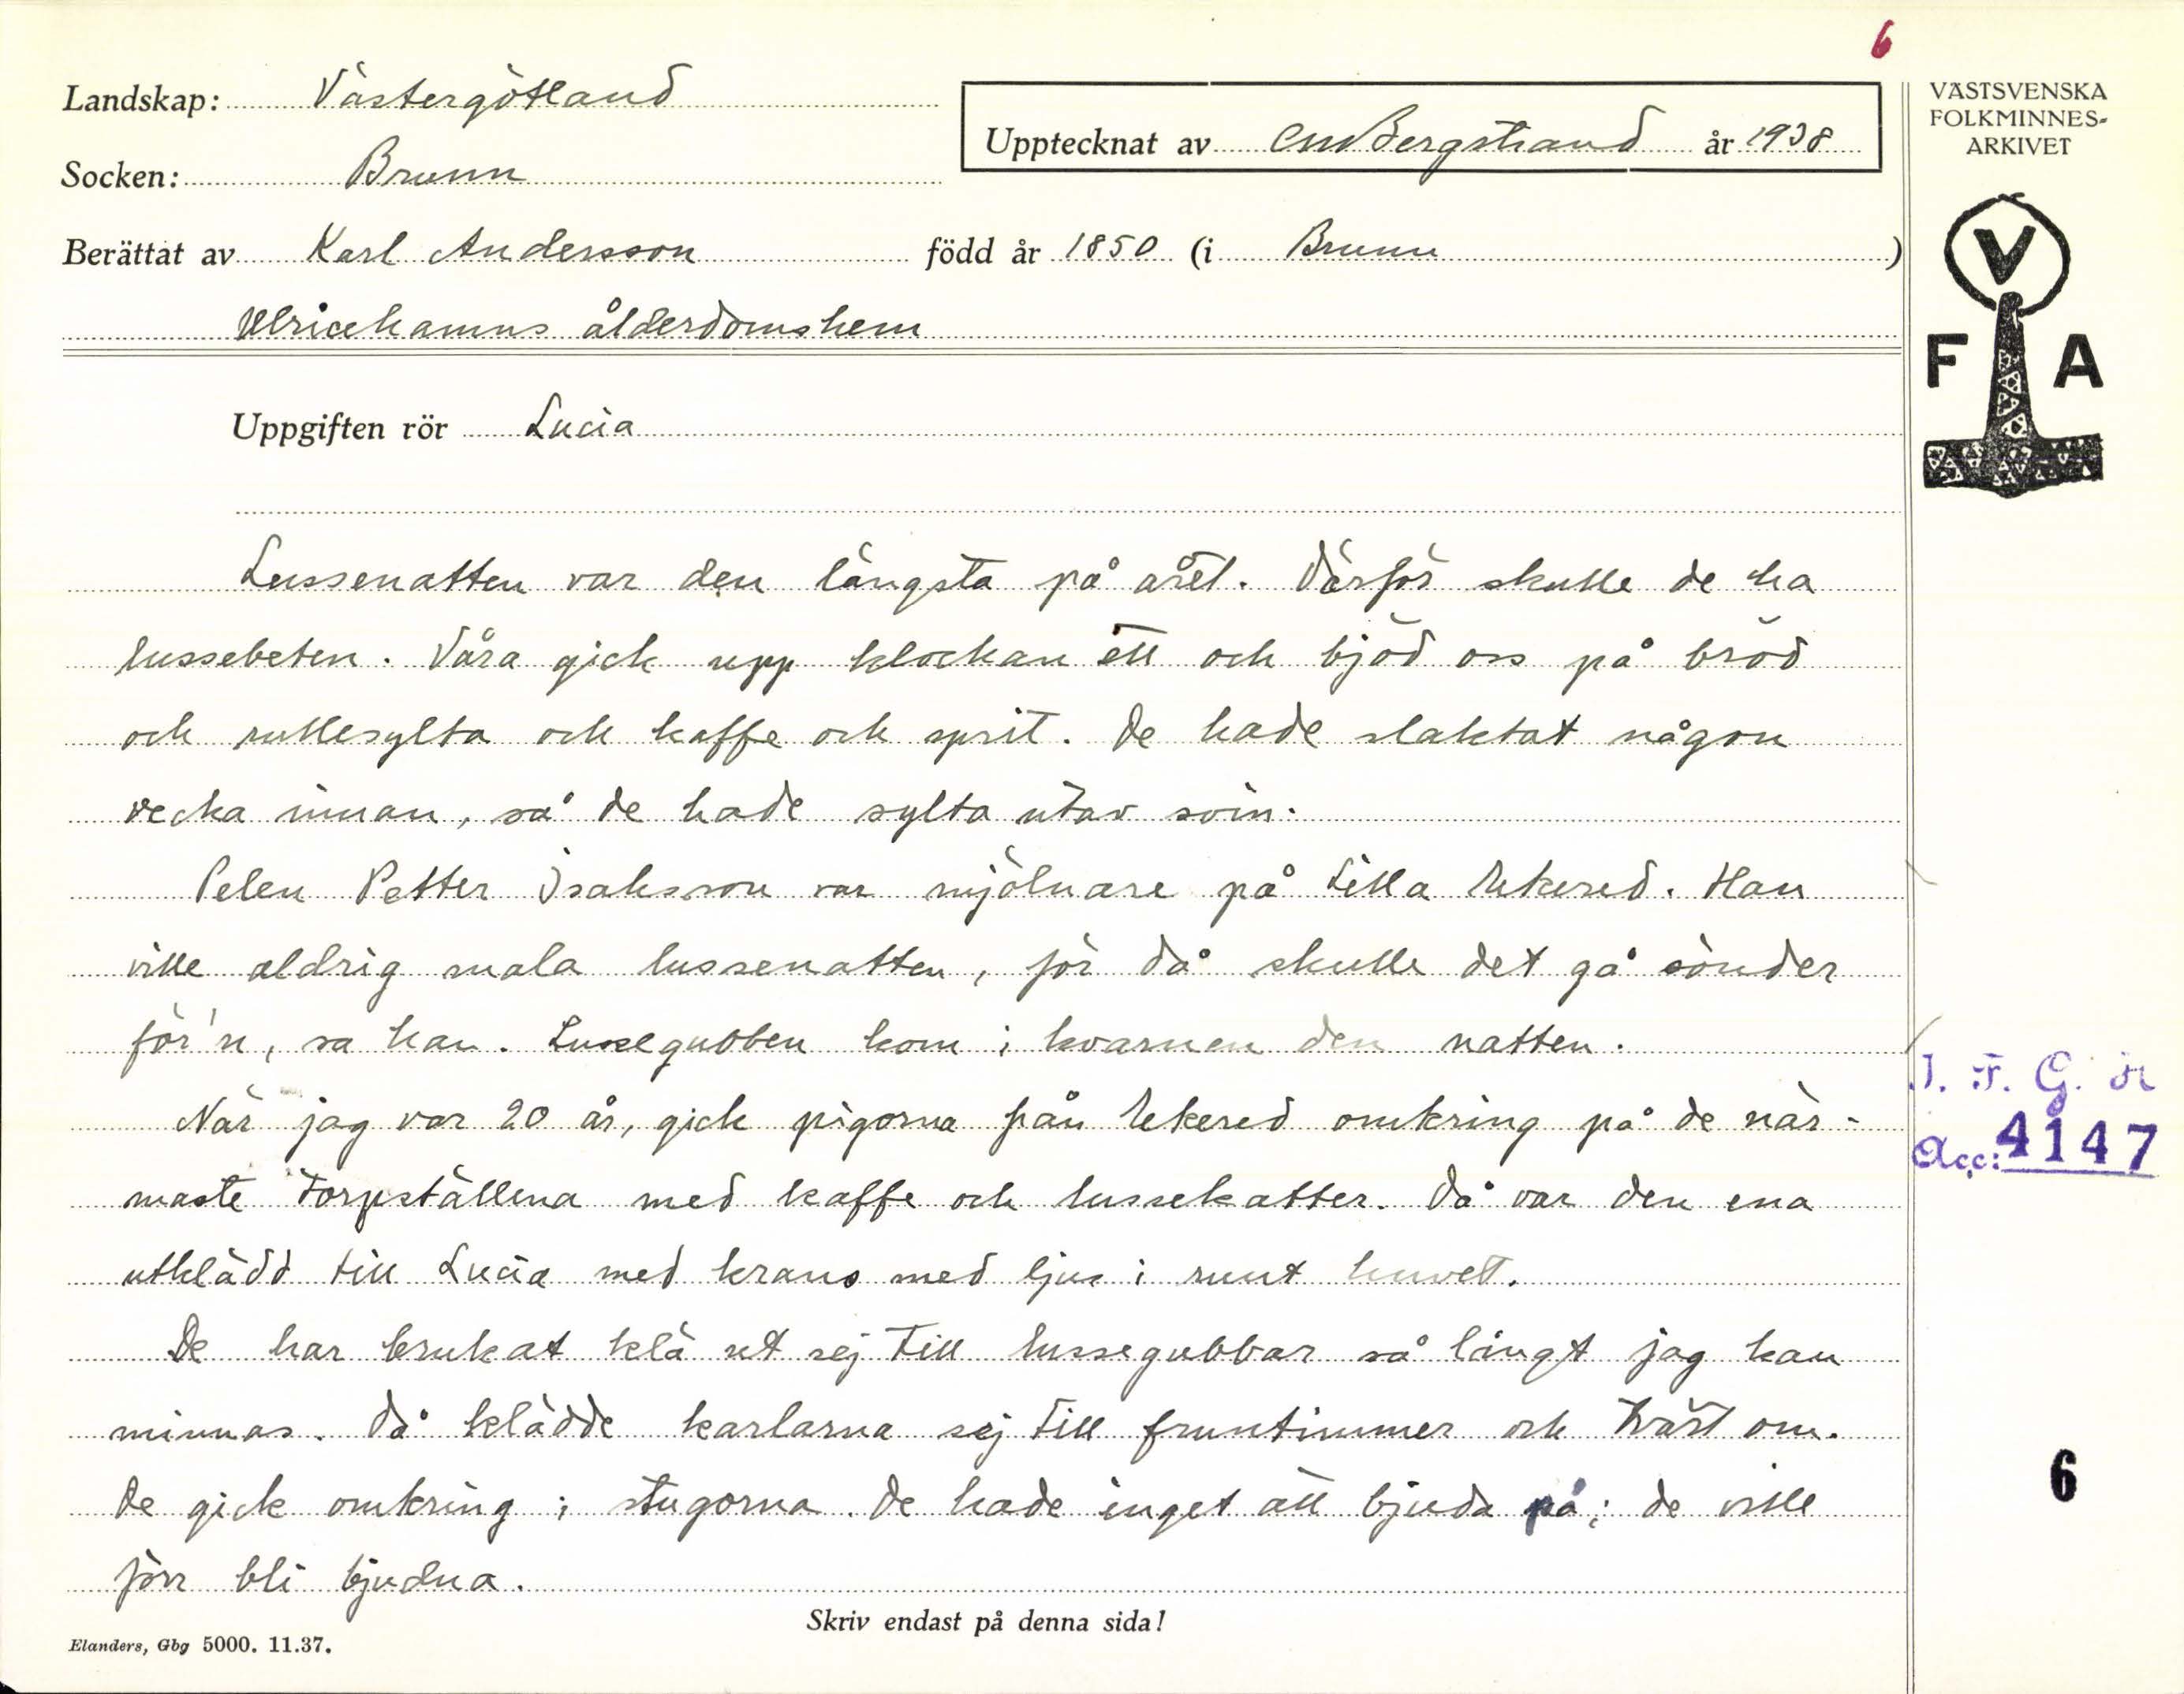 6
Landskap: Västergötland
Socken: Brunn
Upptecknat av CM Bergstrand år 1938
VÄSTSVENSKA
FOLKMINNES-
ARKIVET
V
F A
Berättat av Karl Andersson född år 1850 (i Brunn )
Ulricehamns ålderdomshem
Uppgiften rör Lucia
Lussenatten var den längsta på året. Därför skulle de ha
lussebeten. Våra gick upp klockan ett och bjöd oss på bröd
och rullesylta och kaffe och sprit. De hade slaktat någon
vecka innan, så de hade sylta utav svin.
Pelen Petter Isaksson var mjölnare på Lilla Ukered. Han
ville aldrig mala lussenatten, för då skulle det gå sönder
för'n, sa han. Lussegubben kom i kvarnen den natten.
När jag var 20 år, gick pigorna från Ukered omkring på de när-
maste torpställena med kaffe och lussekatter. Då var den ena
utklädd till Lucia med krans med ljus i runt huvet.
De har brukat klä ut sej till lussegubbar så långt jag kan
minnas. Då klädde karlarna sej till fruntimmer och tvärt om.
De gick omkring i stugorna. De hade inget att bjuda på; de ville
förr bli bjudna.
I. F. G. H
Acc: 4147
6
Skriv endast på denna sida!
Elanders, Gbg 5000. 11.37.